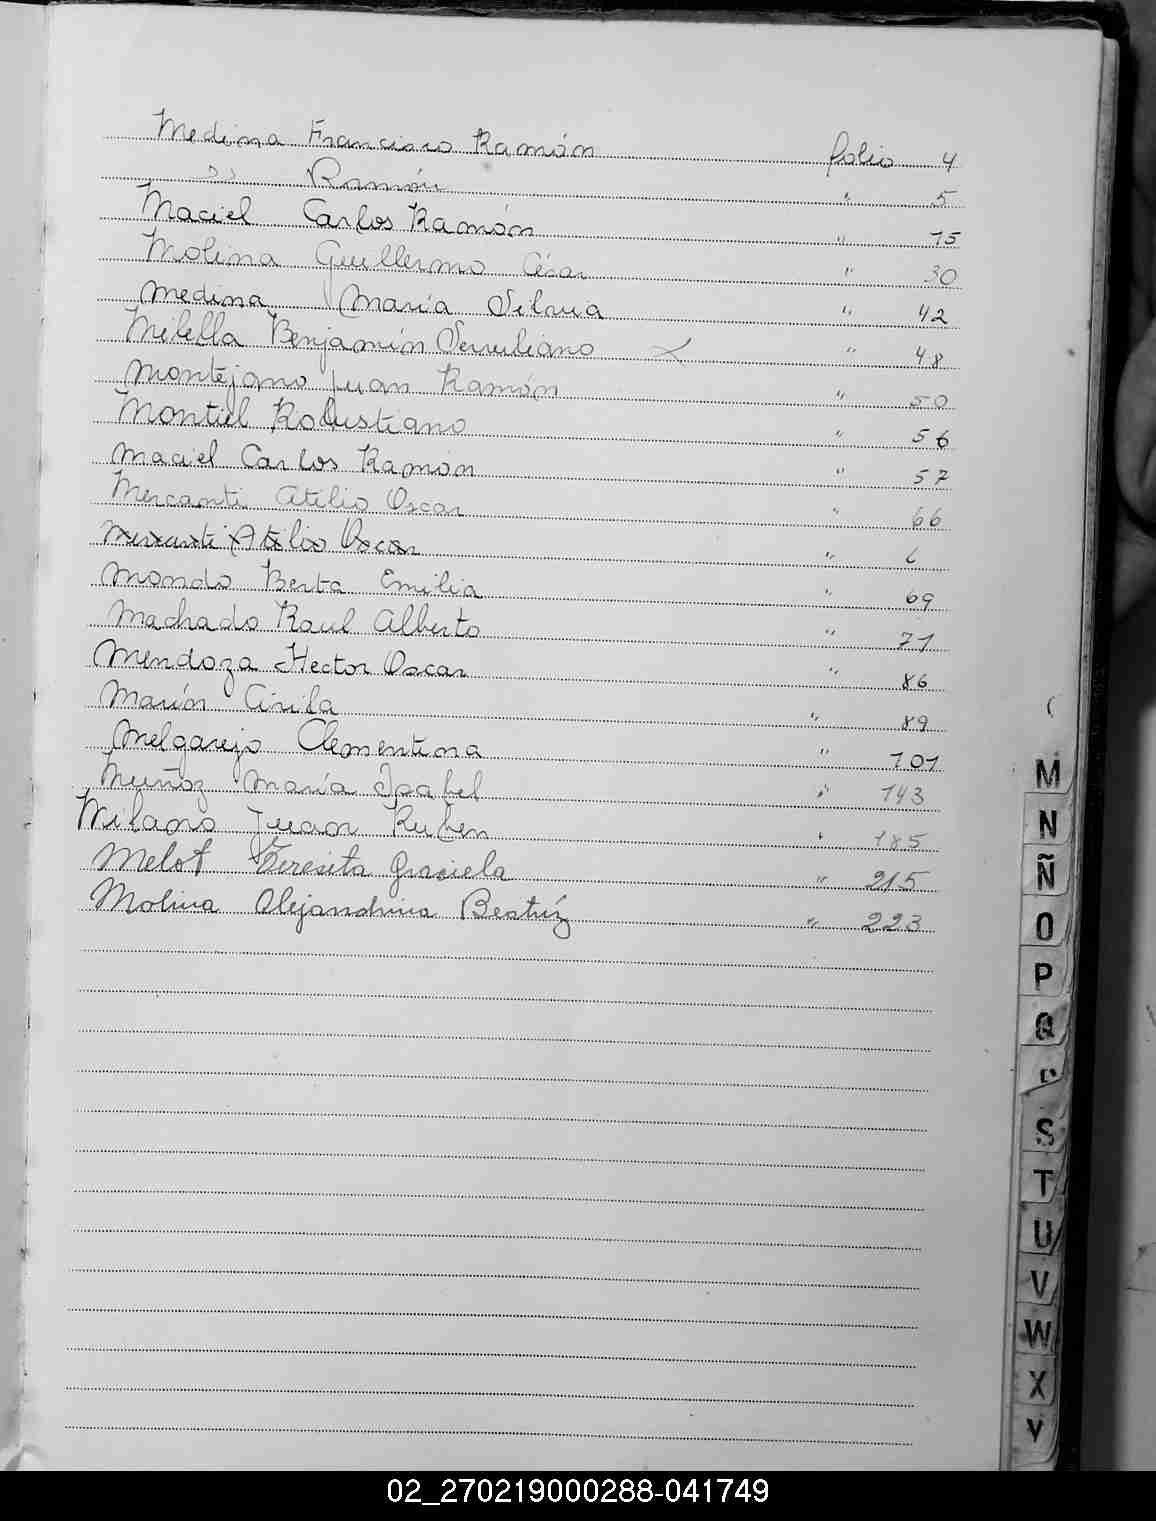 Medina Francisco Ramón folio 4
" Ramón " 5
Maciel Carlos Ramón " 15
Molina Guillermo César " 30
Medina María Silvia " 42
Milella Benjamín Serviliano " 48
Montejano Juan Ramón " 50
Montiel Robustiano " 56
Maciel Carlos Ramón " 57
Mercanti Atilio Oscar " 66
Mercanti Atilio Oscar " 6
Mondo Berta Emilia " 69
Machado Raul Alberto " 71
Mendoza Hector Oscar " 86
Marín Cirila " 89
Melgarejo Clementina " 101
Muñoz María Isabel " 143
Milano Juan Ruben " 185
Melot Teresita Graciela " 215
Molina Alejandrina Beatríz " 223
M
N
Ñ
O
P
Q
S
T
U
V
W
X
02_270219000288-041749